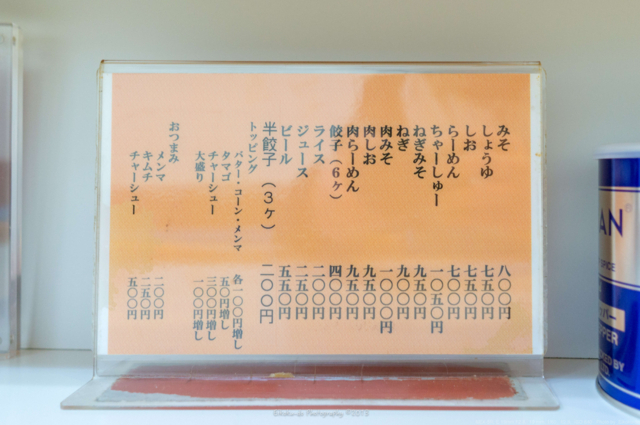 みそ 八〇〇円
しょうゆ 七五〇円
しお 七五〇円
らーめん 七〇〇円
ちゃーしゅー 一〇五〇円
ねぎみそ 九五〇円
ねぎ 九〇〇円
肉みそ 一〇〇〇円
肉しお 九五〇円
肉らーめん 九五〇円
餃子(6ヶ) 四〇〇円
ライス 二〇〇円
ジュース 二五〇円
ビール 五五〇円
半餃子(3ヶ) 二〇〇円
トッピング
バター・コーン・メンマ 各一〇〇円増し
タマゴ 五〇円増し
チャーシュー 三〇〇円増し
大盛り 一〇〇円増し
おつまみ
メンマ 二〇〇円
キムチ 二五〇円
チャーシュー 五〇〇円